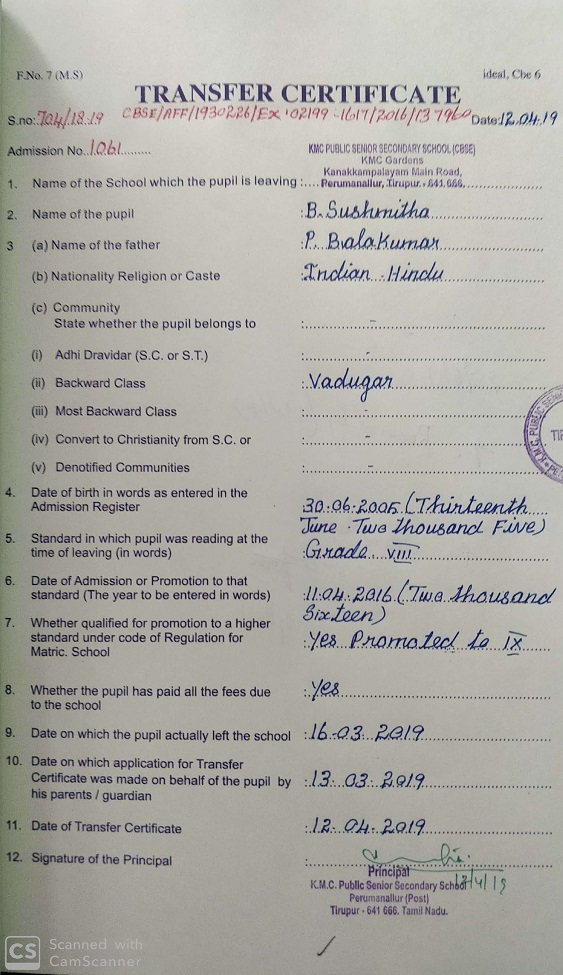 F.No. 7 (M.S)
ideal, Cbe 6
TRANSFER CERTIFICATE
S.no: 704/18.19 CBSE/AFF/1930226/EX-02199-1617/2016/137960 Date: 12.04.19
Admission No. 1061
KMC PUBLIC SENIOR SECONDARY SCHOOL (CBSE)
KMC Gardens
Kanakkampalayam Main Road,
1. Name of the School which the pupil is leaving : Perumanallur, Tirupur - 641 666.
2. Name of the pupil : B. Sushmitha
3 (a) Name of the father : P. BalaKumar
(b) Nationality Religion or Caste : Indian . Hindu
(c) Community
State whether the pupil belongs to : -
(i) Adhi Dravidar (S.C. or S.T.) : -
(ii) Backward Class : Vadugar
(iii) Most Backward Class : -
(iv) Convert to Christianity from S.C. or : -
(v) Denotified Communities : -
4. Date of birth in words as entered in the
Admission Register : 30.06.2005 (Thirteenth
June . Two thousand Five)
5. Standard in which pupil was reading at the
time of leaving (in words) : Grade VIII
6. Date of Admission or Promotion to that
standard (The year to be entered in words) : 11.04.2016 (Two thousand
Sixteen)
7. Whether qualified for promotion to a higher
standard under code of Regulation for : Yes Promoted to IX
Matric. School
8. Whether the pupil has paid all the fees due : Yes
to the school
9. Date on which the pupil actually left the school : 16.03.2019
10. Date on which application for Transfer
Certificate was made on behalf of the pupil by : 13.03.2019
his parents / guardian
11. Date of Transfer Certificate : 12.04.2019
12. Signature of the Principal :
Principal
K.M.C. Public Senior Secondary School 12/4/19
Perumanallur (Post)
Tirupur - 641 666. Tamil Nadu.
K.M.C. PUBLIC SENI
CS Scanned with
CamScanner